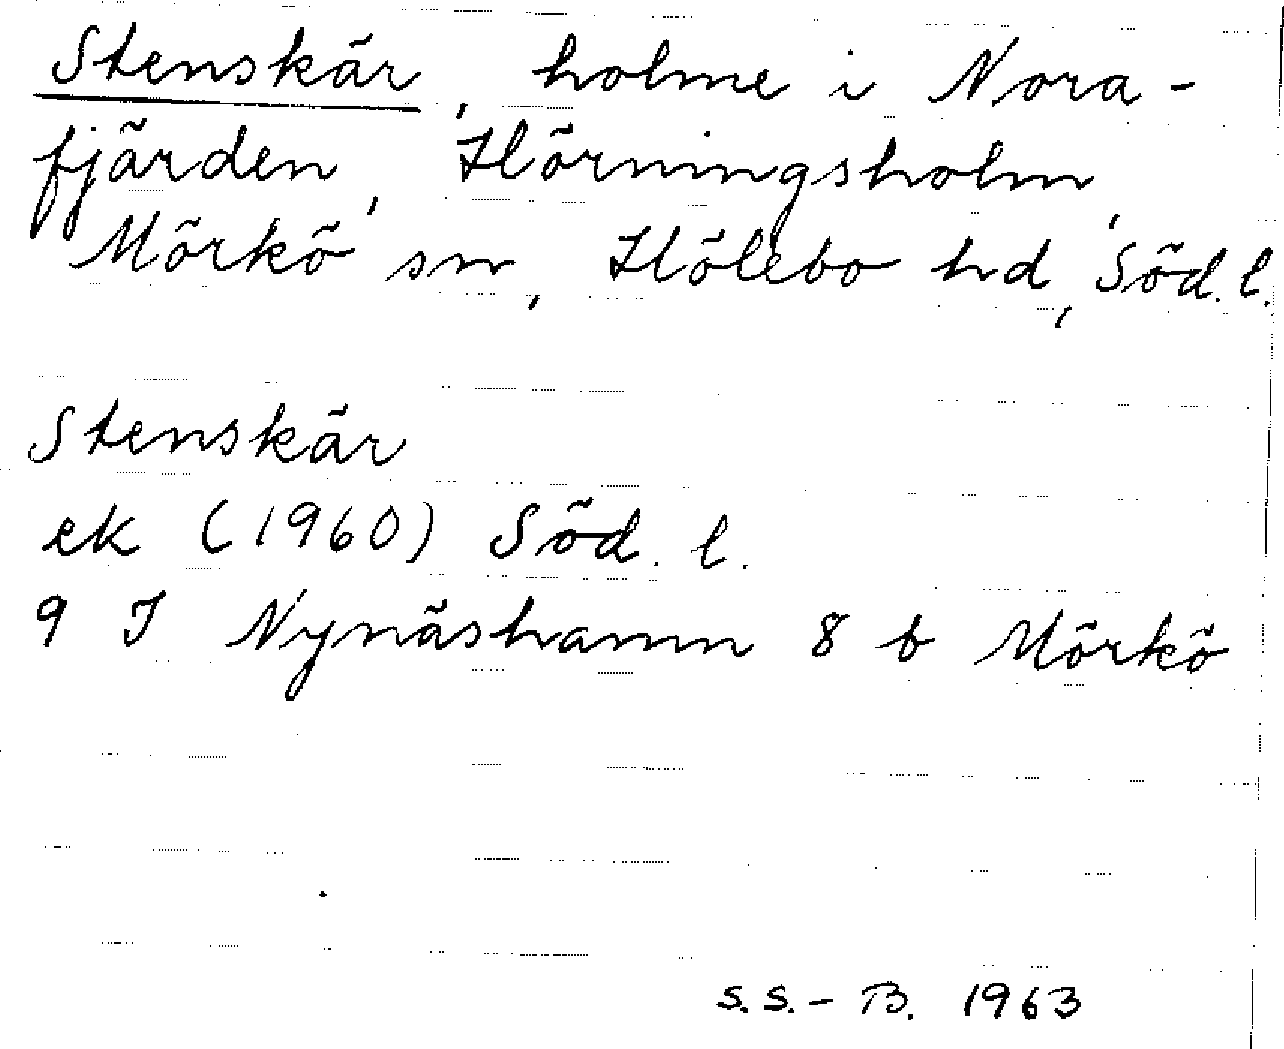 Stenskär, holme i Nora-
fjärden, Hörningsholm,
Mörkö sn, Hölebo hd, Söd. l.
Stenskär
ek (1960) Söd. l.
9 I Nynäshamn 8 b Mörkö
S.S.-B. 1963